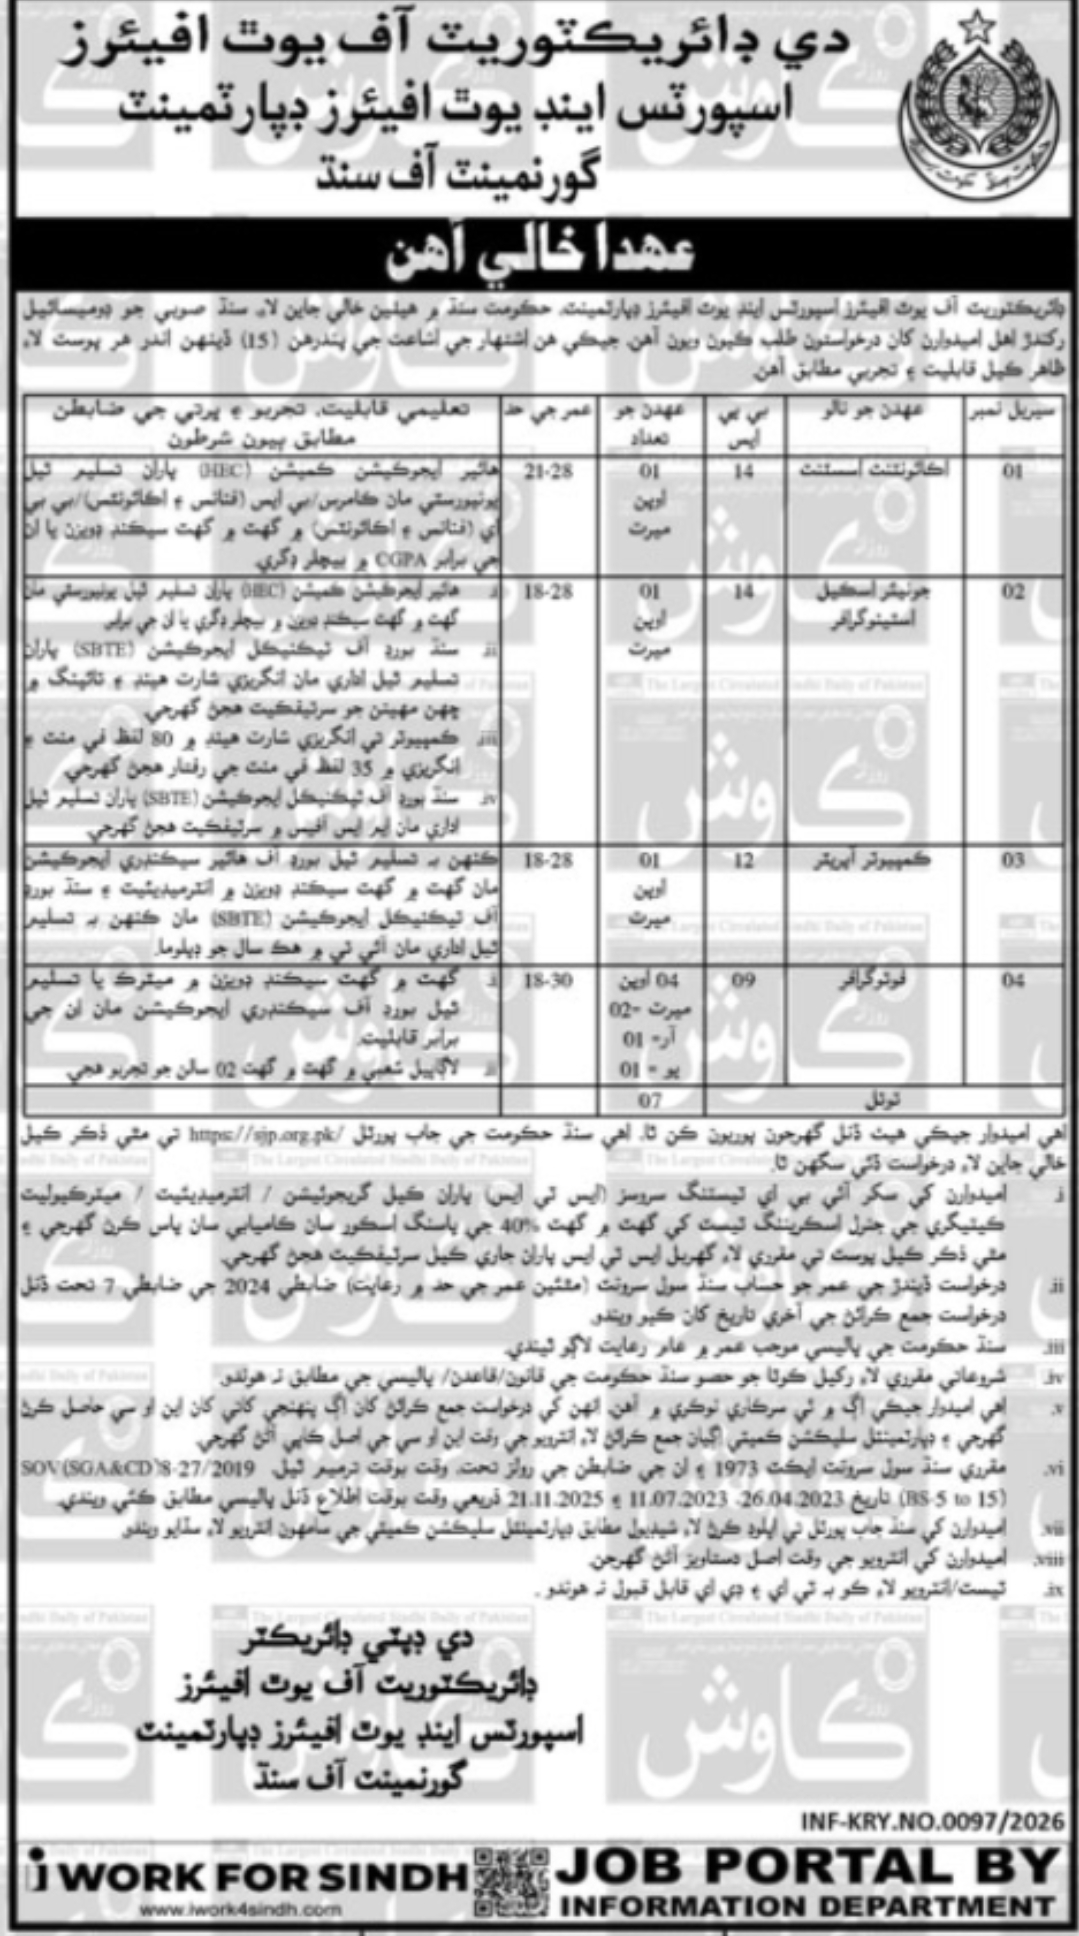 دي ڊائريڪٽوريٽ آف يوٿ افيئرز
اسپورٽس اينڊ يوٿ افيئرز ڊپارٽمينٽ
گورنمينٽ آف سنڌ
عهدا خالي آهن
ڊائريڪٽوريٽ آف يوٿ افيئرز اسپورٽس اينڊ يوٿ افيئرز ڊپارٽمينٽ، حڪومت سنڌ ۾ هيٺين خالي جاين لاءِ سنڌ صوبي جو ڊوميسائيل
رکندڙ اهل اميدوارن کان درخواستون طلب ڪيون ويون آهن. جيڪي هن اشتهار جي اشاعت جي پندرهن (15) ڏينهن اندر هر پوسٽ لاءِ
ظاهر ڪيل قابليت ۽ تجربي مطابق آهن.
سيريل نمبر | عهدن جو نالو | بي پي ايس | عهدن جو تعداد | عمر جي حد | تعليمي قابليت، تجربو ۽ ڀرتي جي ضابطن مطابق ٻيون شرطون
01 | اڪائونٽنٽ اسسٽنٽ | 14 | 01 اوپن ميرٽ | 21-28 | هائير ايجوڪيشن ڪميشن (HEC) پاران تسليم ٿيل
يونيورسٽي مان ڪامرس/بي ايس (فنانس ۽ اڪائونٽس)/بي بي
اي (فنانس ۽ اڪائونٽس) ۾ گهٽ ۾ گهٽ سيڪنڊ ڊويزن يا ان
جي برابر CGPA ۾ بيچلر ڊگري.
02 | جونيئر اسڪيل اسٽينوگرافر | 14 | 01 اوپن ميرٽ | 18-28 | i. هائير ايجوڪيشن ڪميشن (HEC) پاران تسليم ٿيل يونيورسٽي مان
گهٽ ۾ گهٽ سيڪنڊ ڊويزن ۾ بيچلر ڊگري يا ان جي برابر
ii. سنڌ بورڊ آف ٽيڪنيڪل ايجوڪيشن (SBTE) پاران
تسليم ٿيل اداري مان انگريزي شارٽ هينڊ ۽ ٽائپنگ ۾
ڇهن مهينن جو سرٽيفڪيٽ هجڻ گهرجي.
iii. ڪمپيوٽر تي انگريزي شارٽ هينڊ ۾ 80 لفظ في منٽ ۽
انگريزي ۾ 35 لفظ في منٽ جي رفتار هجڻ گهرجي.
iv. سنڌ بورڊ آف ٽيڪنيڪل ايجوڪيشن (SBTE) پاران تسليم ٿيل
اداري مان ايم ايس آفيس ۾ سرٽيفڪيٽ هجڻ گهرجي.
03 | ڪمپيوٽر آپريٽر | 12 | 01 اوپن ميرٽ | 18-28 | ڪنهن به تسليم ٿيل بورڊ آف هائير سيڪنڊري ايجوڪيشن
مان گهٽ ۾ گهٽ سيڪنڊ ڊويزن ۾ انٽرميڊيئيٽ ۽ سنڌ بورڊ
آف ٽيڪنيڪل ايجوڪيشن (SBTE) مان ڪنهن به تسليم
ٿيل اداري مان آئي ٽي ۾ هڪ سال جو ڊپلوما.
04 | فوٽوگرافر | 09 | 04 اوپن ميرٽ -02 آر- 01 يو - 01 | 18-30 | i. گهٽ ۾ گهٽ سيڪنڊ ڊويزن ۾ ميٽرڪ يا تسليم
ٿيل بورڊ آف سيڪنڊري ايجوڪيشن مان ان جي
برابر قابليت.
ii. لاڳاپيل شعبي ۾ گهٽ ۾ گهٽ 02 سالن جو تجربو هجي.
ٽوٽل | 07
اهي اميدوار جيڪي هيٺ ڏنل گهرجون پوريون ڪن ٿا، اهي سنڌ حڪومت جي جاب پورٽل https://sjp.org.pk/ تي مٿي ذڪر ڪيل
خالي جاين لاءِ درخواست ڏئي سگهن ٿا.
i. اميدوارن کي سکر آئي بي اي ٽيسٽنگ سروسز (ايس ٽي ايس) پاران ڪيل گريجوئيشن / انٽرميڊيئيٽ / ميٽرڪيوليٽ
ڪيٽيگري جي جنرل اسڪريننگ ٽيسٽ کي گهٽ ۾ گهٽ 40% جي پاسنگ اسڪور سان ڪاميابي سان پاس ڪرڻ گهرجي ۽
مٿي ذڪر ڪيل پوسٽ تي مقرري لاءِ گهربل ايس ٽي ايس پاران جاري ڪيل سرٽيفڪيٽ هجڻ گهرجي.
ii. درخواست ڏيندڙ جي عمر جو حساب سنڌ سول سرونٽ (مٿئين عمر جي حد ۾ رعايت) ضابطي 2024 جي ضابطي 7 تحت ڏنل
درخواست جمع ڪرائڻ جي آخري تاريخ کان ڪيو ويندو.
iii. سنڌ حڪومت جي پاليسي موجب عمر ۾ عام رعايت لاڳو ٿيندي.
iv. شروعاتي مقرري لاءِ رکيل ڪوٽا جو حصو سنڌ حڪومت جي قانون/قاعدن/ پاليسي جي مطابق نه هوندو.
v. اهي اميدوار جيڪي اڳ ۾ ئي سرڪاري نوڪري ۾ آهن، انهن کي درخواست جمع ڪرائڻ کان اڳ پنهنجي کاتي کان اين او سي حاصل ڪرڻ
گهرجي ۽ ڊپارٽمينٽل سليڪشن ڪميٽي اڳيان جمع ڪرائڻ لاءِ انٽرويو جي وقت اين او سي جي اصل ڪاپي آڻڻ گهرجي.
vi. مقرري سنڌ سول سرونٽ ايڪٽ 1973 ۽ ان جي ضابطن جي رولز تحت، وقت بوقت ترميم ٿيل، SOV(SGA&CD)8-27/2019
(BS-5 to 15) تاريخ 26.04.2023، 11.07.2023 ۽ 21.11.2025 ذريعي وقت بوقت اطلاع ڏنل پاليسي مطابق ڪئي ويندي.
vii. اميدوارن کي سنڌ جاب پورٽل تي اپلوڊ ڪرڻ لاءِ شيڊيول مطابق ڊپارٽمينٽل سليڪشن ڪميٽي جي سامهون انٽرويو لاءِ سڏايو ويندو.
viii. اميدوارن کي انٽرويو جي وقت اصل دستاويز آڻڻ گهرجن.
ix. ٽيسٽ/انٽرويو لاءِ ڪو به ٽي اي ۽ ڊي اي قابل قبول نه هوندو.
دي ڊپٽي ڊائريڪٽر
ڊائريڪٽوريٽ آف يوٿ افيئرز
اسپورٽس اينڊ يوٿ افيئرز ڊپارٽمينٽ
گورنمينٽ آف سنڌ
INF-KRY.NO.0097/2026
i WORK FOR SINDH
www.iwork4sindh.com
JOB PORTAL BY
INFORMATION DEPARTMENT